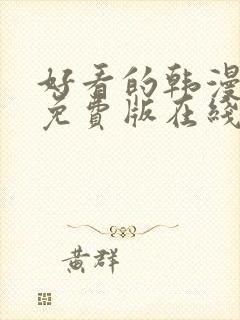 好看的韩漫
免費版在綫
黄群